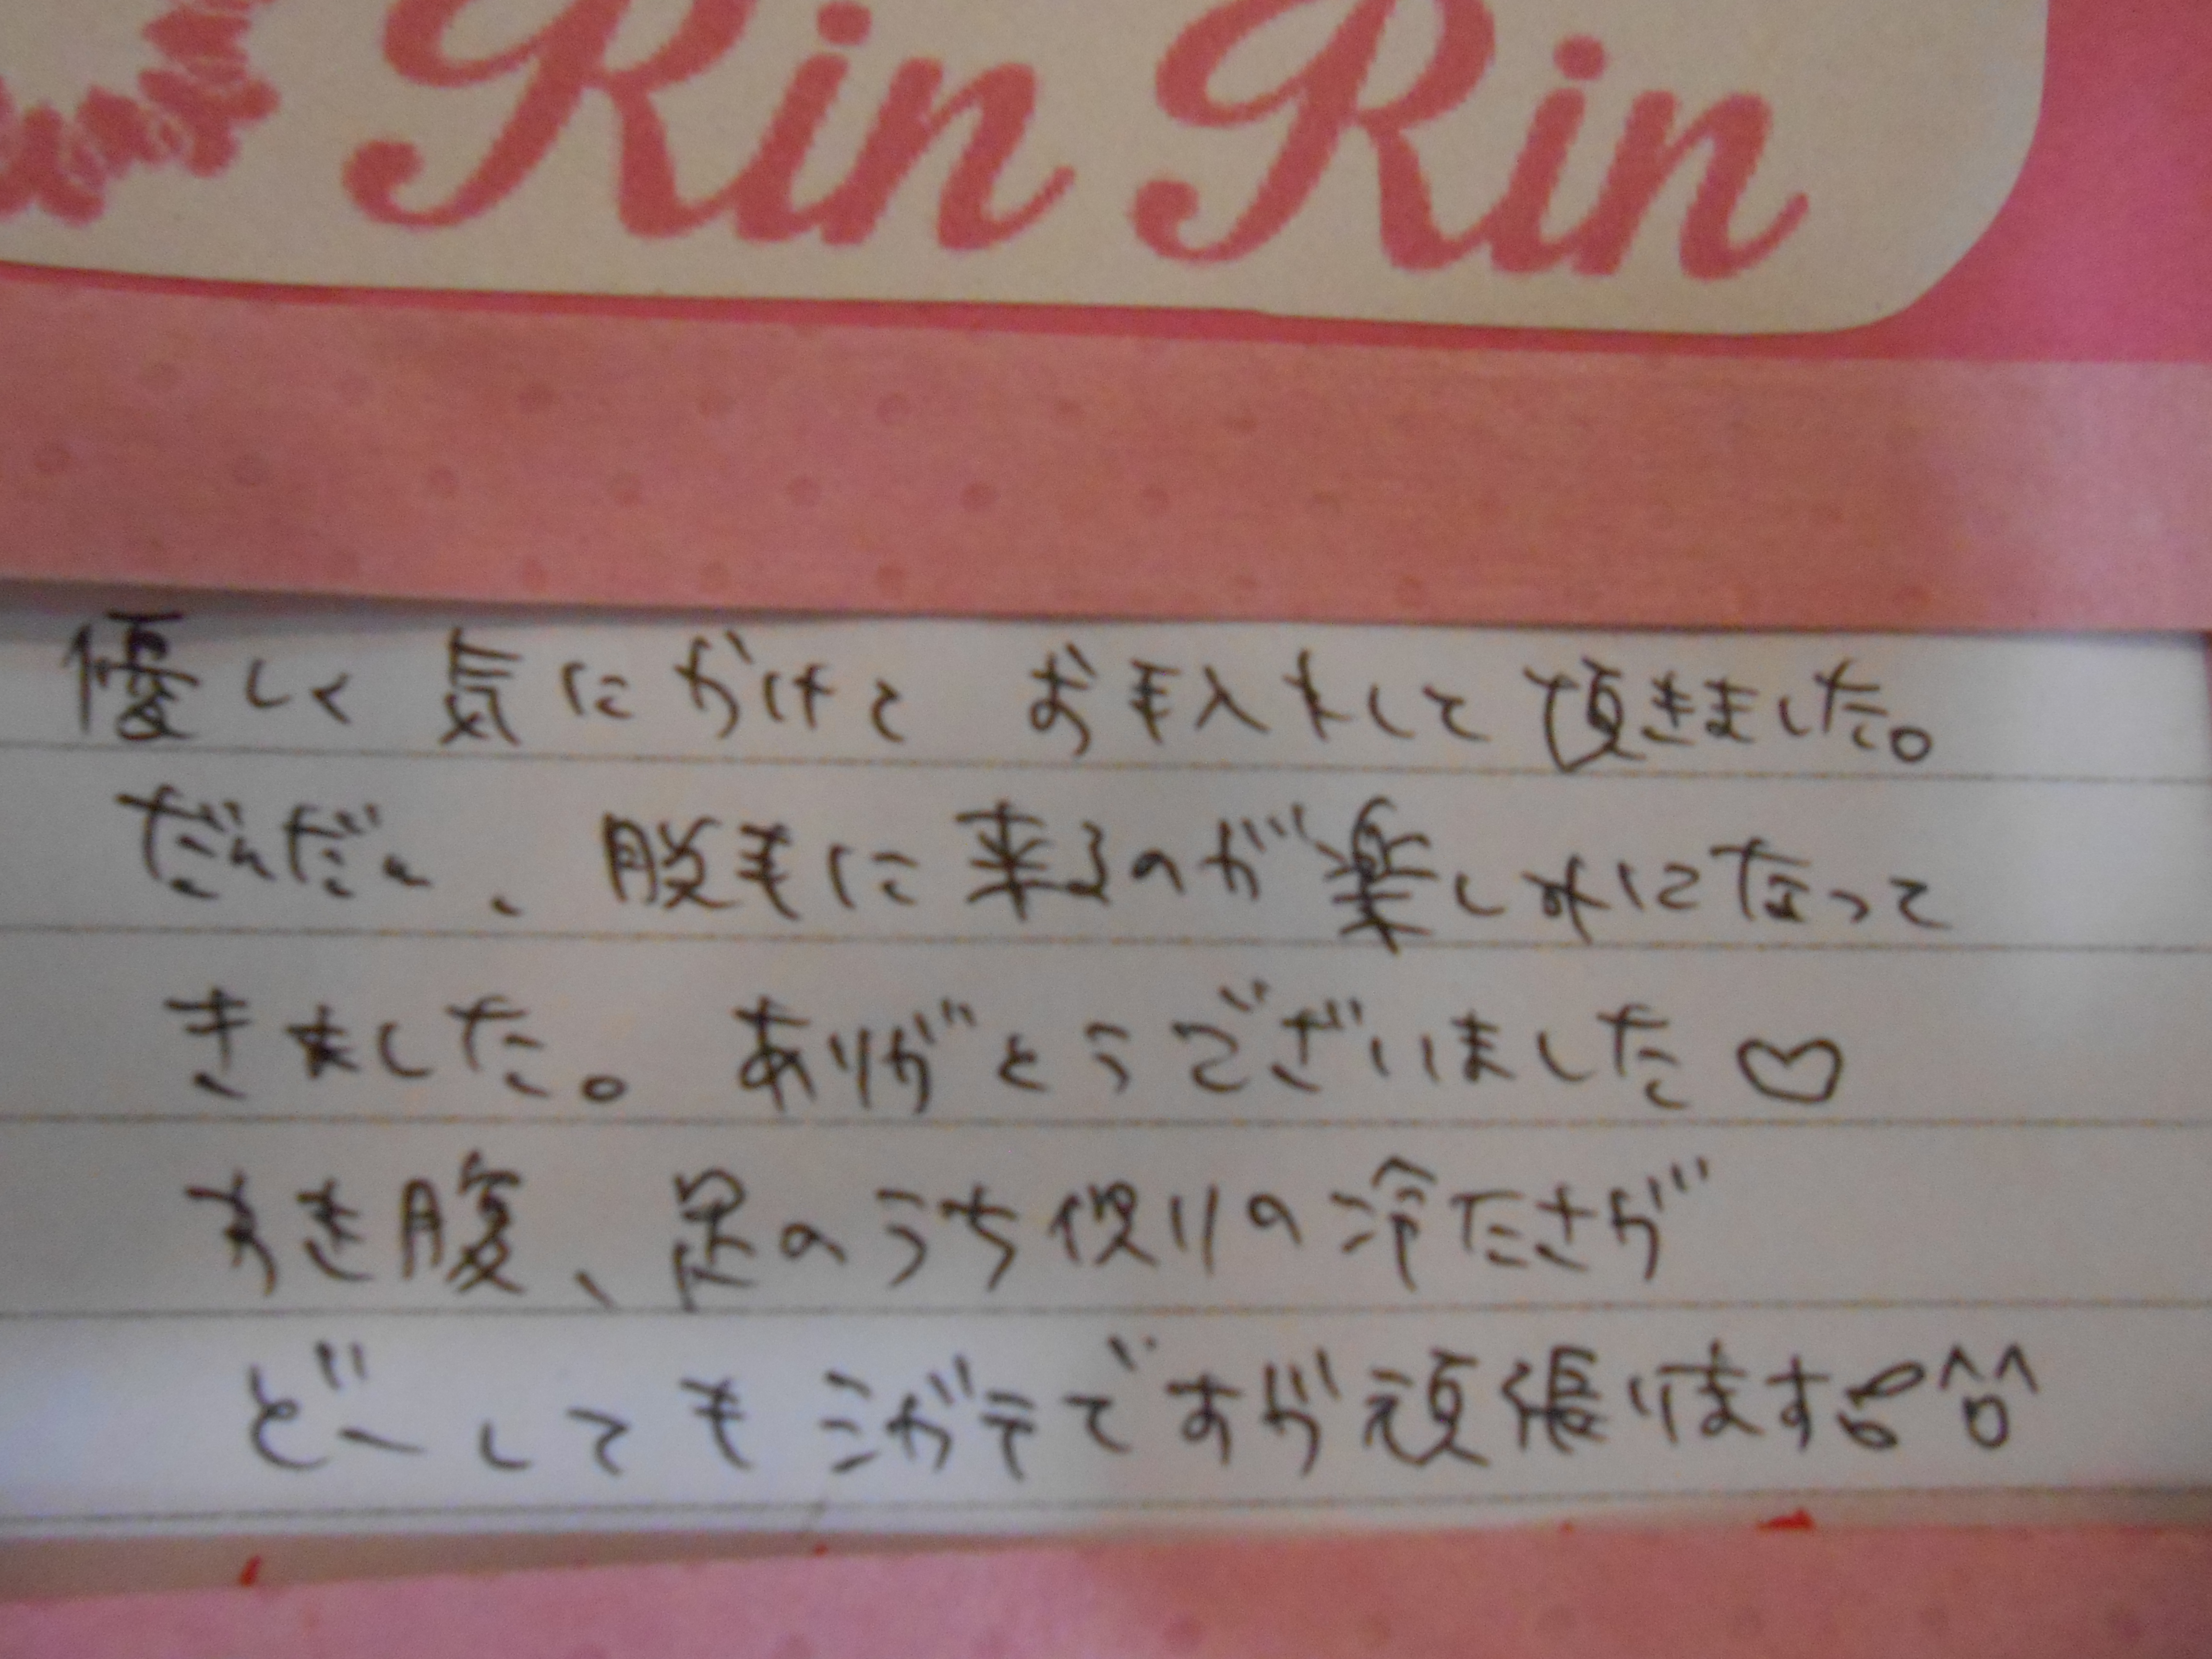 Rin Rin
優しく 気にかけて お手入れして 頂きました。
だんだん、脱毛に来るのが楽しみになって
きました。 ありがとうございました♡
すき腹、足のうち側の冷たさが
どーしても ニガテですが頑張ります♪^o^